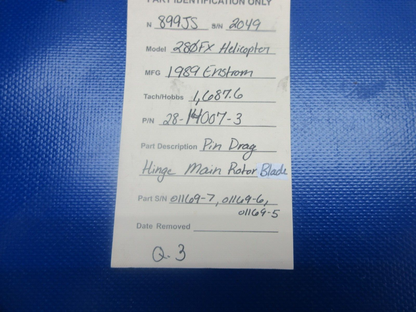 PART IDENTIFICATION ONLY
N 899JS S/N 2049
Model 280FX Helicopter
MFG 1989 Enstrom
Tach/Hobbs 1,687.6
P/N 28-14007-3
Part Description Pin Drag
Hinge Main Rotor Blade
Part S/N 01169-7, 01169-6,
01169-5
Date Removed
Q-3